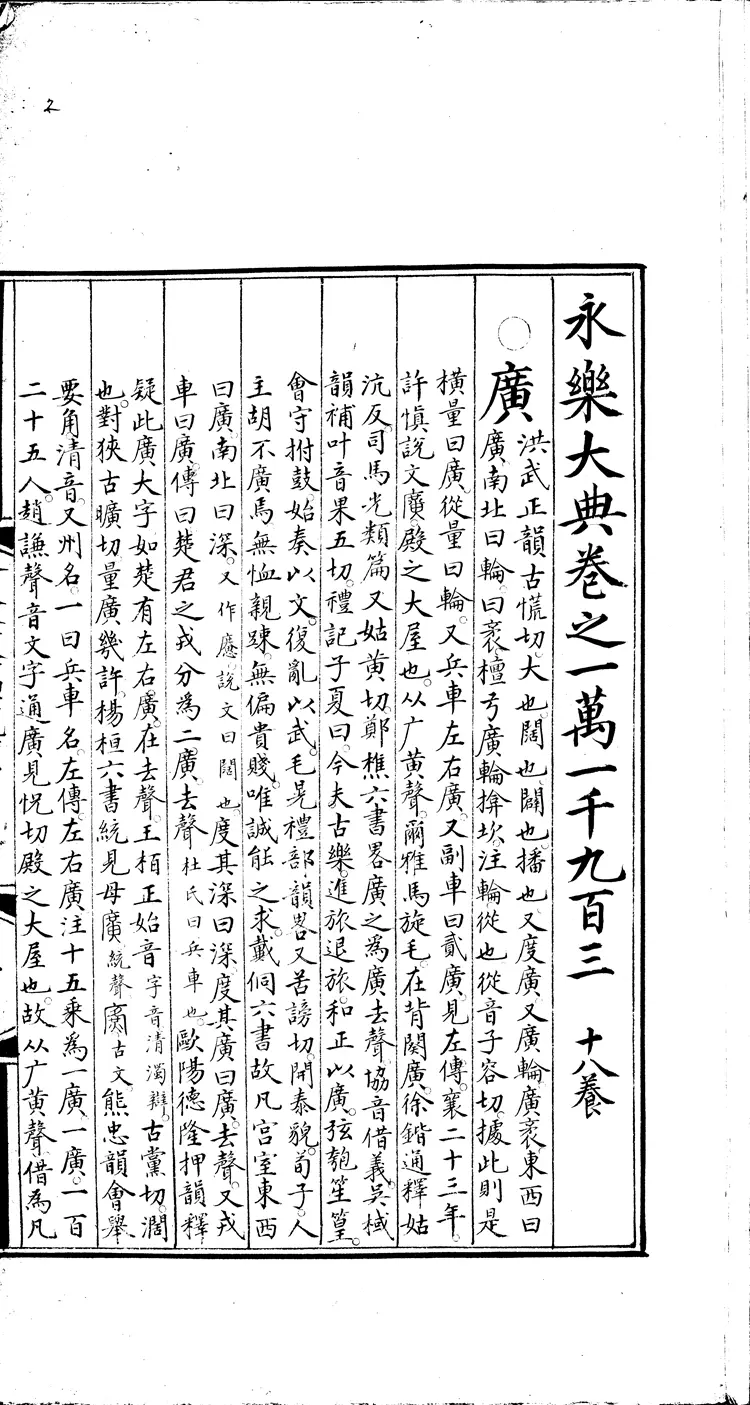 永樂大典卷之一萬一千九百三 十八養
廣
洪武正韻古慌切大也闊也闢也播也又度廣又廣輪廣袤東西曰
廣南北曰輪曰袤檀弓廣輪揜坎注輪從也從音子容切據此則是
橫量曰廣從量曰輪又兵車左右廣又副車曰貳廣見左傳襄二十三年
許慎說文廣殿之大屋也从广黃聲爾雅馬旋毛在背闋廣徐鍇通釋姑
沆反司馬光類篇又姑黃切鄭樵六書畧廣之為廣去聲協音借義吳棫
韻補叶音果五切禮記子夏曰今夫古樂進旅退旅和正以廣弦匏笙篁
會守拊鼓始奏以文復亂以武毛晃禮部韻畧又苦謗切開泰貌荀子人
主胡不廣焉無恤親踈無偏貴賤唯誠能之求戴侗六書故凡宫室東西
曰廣南北曰深又作㢓說文曰闊也度其深曰深度其廣曰廣去聲又戎
車曰廣傳曰楚君之戎分為二廣去聲杜氏曰兵車也歐陽德隆押韻釋
疑此廣大字如楚有左右廣在去聲王柏正始音字音清濁辯古黨切濶
也對狹古曠切量廣幾許楊桓六書統見母廣統聲古文熊忠韻會舉
要角清音又州名一曰兵車名左傳左右廣注十五乘為一廣一廣一百
二十五人趙謙聲音文字通廣見怳切殿之大屋也故从广黄聲借為凡
2